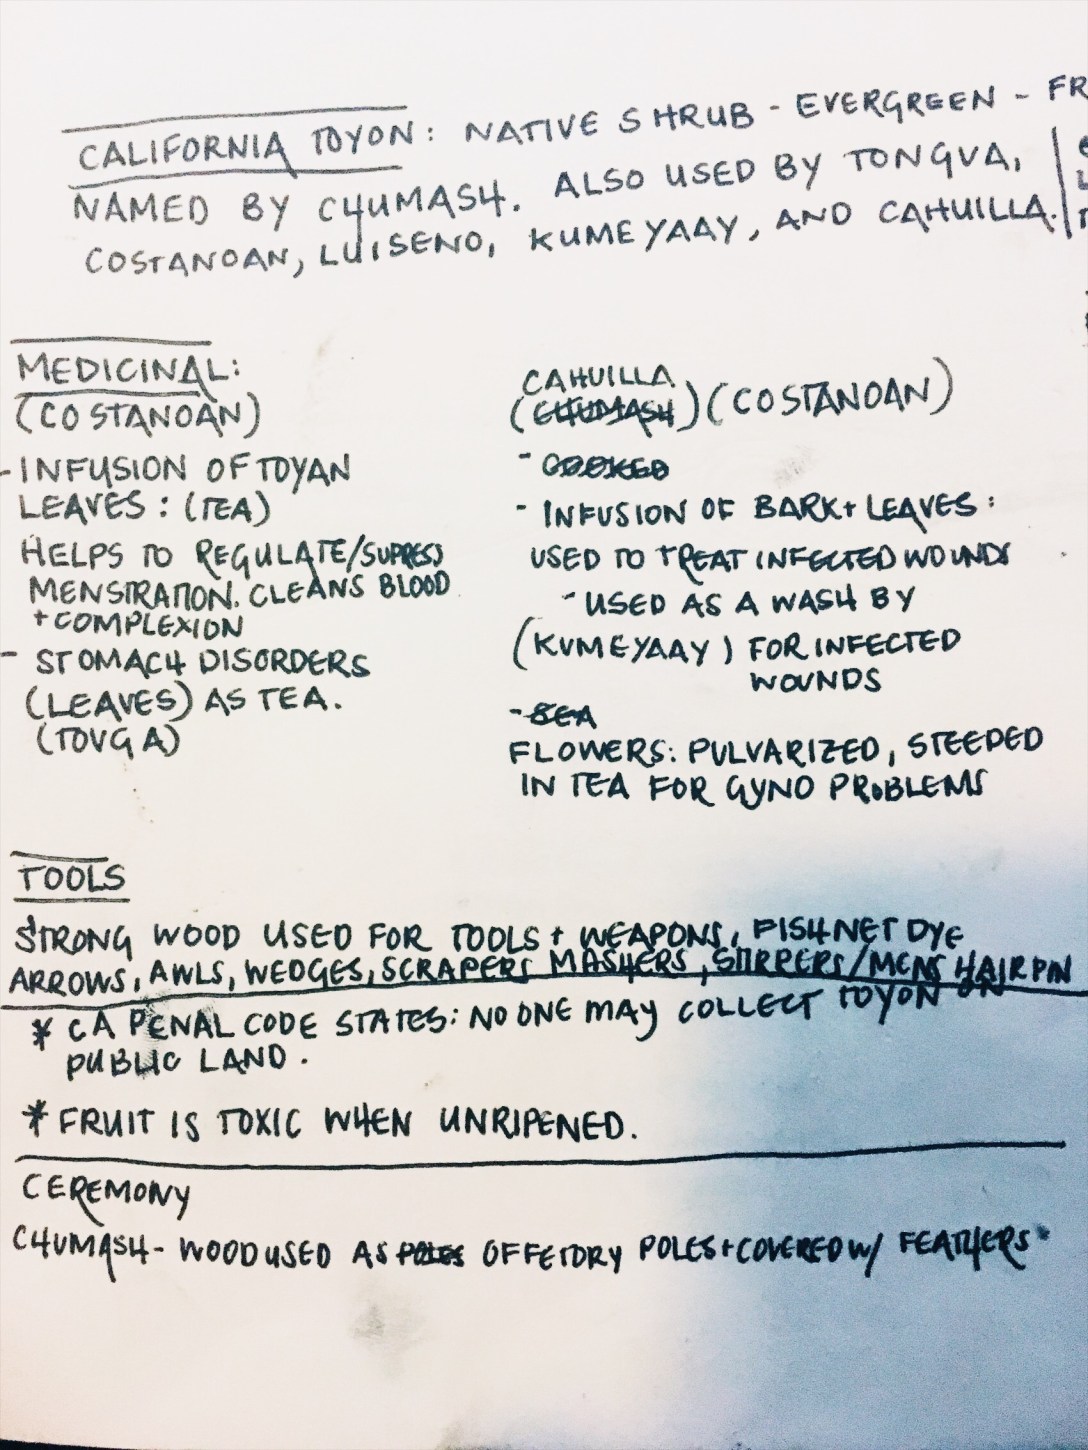 CALIFORNIA TOYON: NATIVE SHRUB - EVERGREEN - FR
NAMED BY CHUMASH. ALSO USED BY TONGVA,
COSTANOAN, LUISENO, KUMEYAAY, AND CAHUILLA.
MEDICINAL:
(COSTANOAN)
- INFUSION OF TOYAN
LEAVES: (TEA)
HELPS TO REGULATE/SUPRESS
MENSTRATION. CLEANS BLOOD
+ COMPLEXION
- STOMACH DISORDERS
(LEAVES) AS TEA.
(TOVGA)
CAHUILLA
(CHUMASH) (COSTANOAN)
- COOKED
- INFUSION OF BARK + LEAVES:
USED TO TREAT INFECTED WOUNDS
- USED AS A WASH BY
(KUMEYAAY) FOR INFECTED
WOUNDS
- SEA
FLOWERS: PULVARIZED, STEEDED
IN TEA FOR GYNO PROBLEMS
TOOLS
STRONG WOOD USED FOR TOOLS + WEAPONS, FISHNET DYE
ARROWS, AWLS, WEDGES, SCRAPERS MASHERS, STIRRERS/MENS HAIR PIN
* CA PENAL CODE STATES: NO ONE MAY COLLECT TOYON ON
PUBLIC LAND.
* FRUIT IS TOXIC WHEN UNRIPENED.
CEREMONY
CHUMASH - WOOD USED AS POLES OFFETORY POLES + COVERED W/ FEATHERS